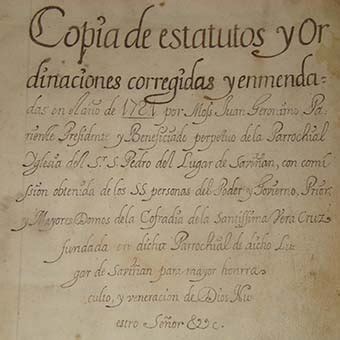 Copia de estatutos y Or
dinaciones corregidas y enmenda-
das en el año de 1761 por Mosn Juan Geronimo Pa-
riente Presidente y Beneficiado perpetuo de la Parrochial
Iglesia del Sr. S. Pedro del Lugar de Saviñan, con comi
ssion obtenida de los SS personas del Poder y Govierno, Prior,
y Mayores Domos dela Cofradia dela Santissima Vera Cruz
fundada en dicha Parrochial de dicho Lu
gar de Saviñan para mayor honrra
culto, y veneracion de Dios Nu
estro Señor &c.